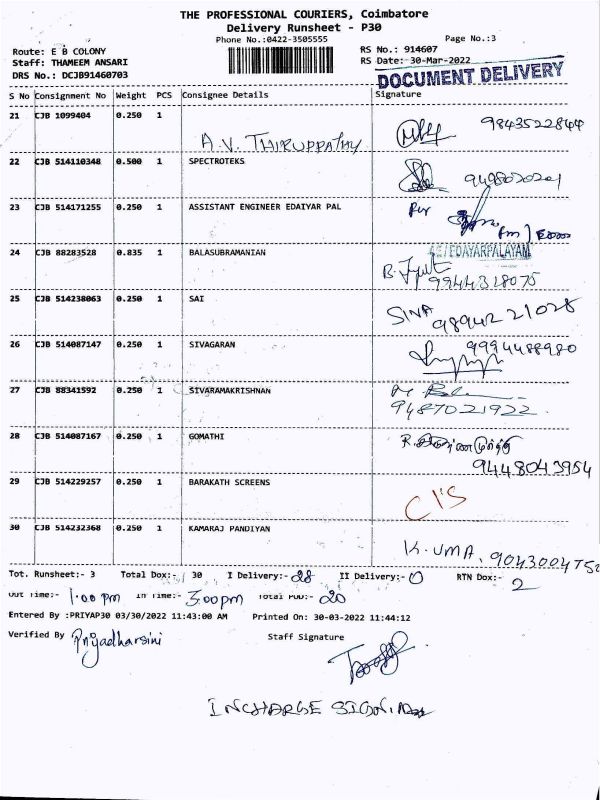 THE PROFESSIONAL COURIERS, Coimbatore
Delivery Runsheet - P30
Phone No.:0422-3505555 Page No.:3
Route: E B COLONY RS No.: 914607
Staff: THAMEEM ANSARI RS Date: 30-Mar-2022
DRS No.: DCJB91460703 DOCUMENT DELIVERY
S No Consignment No Weight PCS Consignee Details Signature
21 CJB 1099404 0.250 1 A.V. THIRUPPATHY 9843522844
22 CJB 514110348 0.500 1 SPECTROTEKS
23 CJB 514171255 0.250 1 ASSISTANT ENGINEER EDAIYAR PAL
AE/EDAYARPALAYAM
24 CJB 88283528 0.835 1 BALASUBRAMANIAN
9944318075
25 CJB 514238063 0.250 1 SAI SIVA 9894221028
26 CJB 514087147 0.250 1 SIVAGARAN 9994488980
27 CJB 88341592 0.250 1 SIVARAMAKRISHNAN
9487021922
28 CJB 514087167 0.250 1 GOMATHI
9448043954
29 CJB 514229257 0.250 1 BARAKATH SCREENS C/S
30 CJB 514232368 0.250 1 KAMARAJ PANDIYAN
K. UMA, 9043004752
Tot. Runsheet:- 3 Total Dox:- 30 I Delivery:- 28 II Delivery:- 0 RTN Dox:- 2
Out Time:- 1:00 pm In Time:- 3:00 pm Total POD:- 20
Entered By :PRIYAP30 03/30/2022 11:43:00 AM Printed On: 30-03-2022 11:44:12
Verified By Priyadharsini Staff Signature
INCHARGE SIGN.